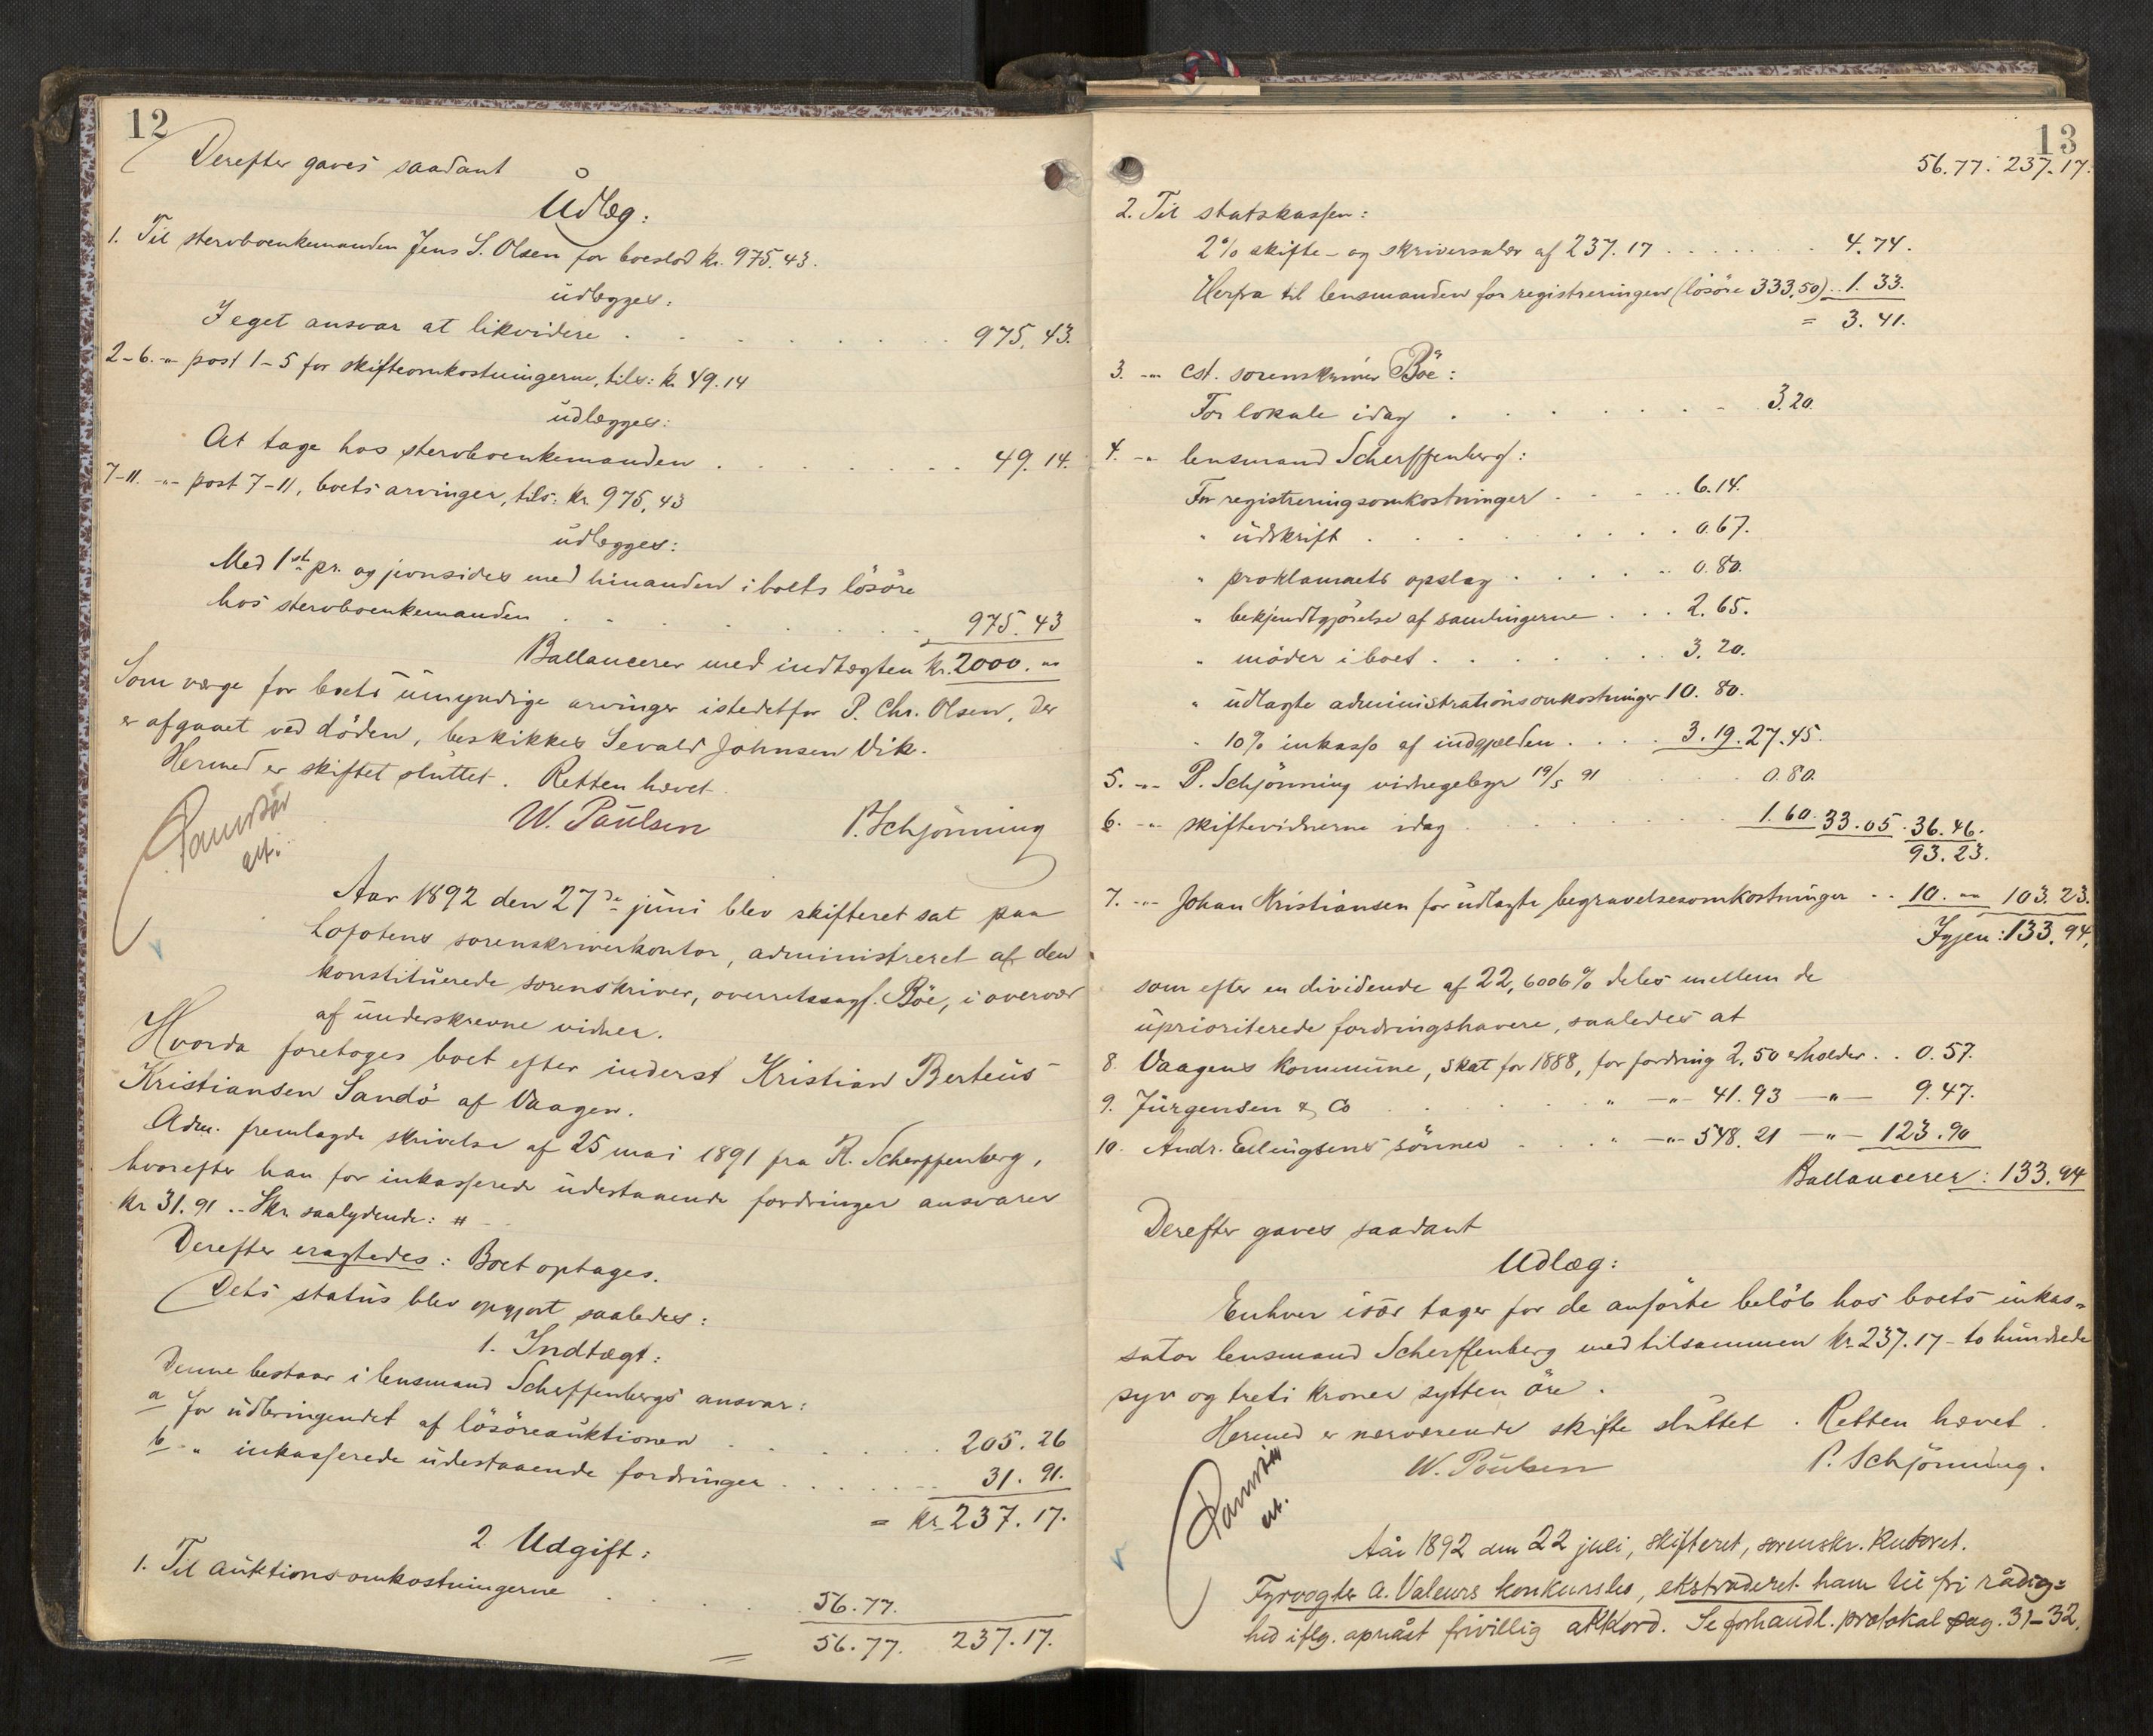 12
Derefter gaves saadant
Udlæg:
1. Til stervboenkemanden Jens S. Olsen for boeslod kr. 975.43.
udlægges:
I eget ansvar at likvidere . . . . . . . 975.43.
2-6. -"- post 1-5 for skifteomkostningerne, tils: kr. 49.14
udlægges:
At tage hos stervboenkemanden . . . . . . . 49.14.
7-11. -"- post 7-11, boets arvinger, tils: kr. 975,43
udlægges:
Med 1ste pr. og jevnsides med hinanden i boets lösöre
hos stervboenkemanden . . . . . . . 975.43
Ballancerer med indtægten kr. 2000. "
Som værge for boets umyndige arvinger istedetfor P. Chr. Olsen, der
er afgaaet ved döden, beskikkes Sevald Johnsen Vik.
Hermed er skiftet sluttet. Retten hævet.
W. Paulsen P. Schjönning
Aar 1892 den 27de juni blev skifteret sat paa
Lofotens sorenskriverkontor, administreret af den
konstituerede sorenskriver, overretssagf. Böe, i overvær
af underskrevne vidner.
Hvorda foretoges boet efter inderst Kristian Berteus
Kristiansen Sandö af Vaagen.
Adm. fremlagde skrivelse af 25 mai 1891 fra R. Scherffenberg,
hvorefter han for inkasserede udestaaende fordringer ansvarer
kr 31.91 .- Skr. saalydende: #
Derefter eragtedes: Boet optages.
Dets status blev opgjort saaledes:
1. Indtægt:
Denne bestaar i lensmand Scherffenbergs ansvar:
a for udbringendet af lösöreauktionen . . . . . . . 205.26
b - " inkasserede udestaaende fordringer . . . . . . . 31.91.
= kr. 237.17.
2 Udgift:
1. Til auktionsomkostningerne . . . . 56.77.
= 56.77. 237.17.
13
56.77. 237.17.
2. Til statskassen:
2% skifte- og skriversalær af 237.17 . . . . . . . 4.74.
Herfra til lensmanden for registreringen (lösöre 333,50) . . 1.33.
= 3.41.
3. -"- cst. sorenskriver Böe:
For lokale idag . . . . . . . 3.20.
4. -"- lensmand Scherffenberg:
For registreringsomkostninger . . . . . 6.14.
" udskrift . . . . . . . 0.67.
" proklamaets opslag . . . . . 0.80.
" bekjendtgjörelse af samlingerne . . . 2.65.
" möder i boet . . . . . . . 3.20.
" udlagte administrationsomkostninger 10.80.
" 10% inkasso af indgjælden . . . . 3.19. 27.45.
5. -"- P. Schjönning vidnegebyr 19/5 91 . . . . 0.80.
6. -"- skiftevidnerne idag . . . . . . . 1.60. 33.05. 36.46.
93.23.
7. -"- Johan Kristiansen for udlagte begravelsesomkostninger . . 10. " 103.23.
Igjen: 133.94,
som efter en dividende af 22,6006% deles mellem de
uprioriterede fordringshavere, saaledes at
8. Vaagens kommune, skat for 1888, for fordring 2.50 erholder . . 0.57.
9. Jürgensen & Co . . . . . " -"- 41.93 -"- 9.47.
10. Andr. Ellingsens sönner . . . . " -"- 548.21 -"- 123.90
Ballancerer: 133.94
Derefter gaves saadant
Udlæg:
Enhver især tager for de anförte belöb hos boets inkas=
sator lensmand Scherffenberg med tilsammen kr. 237.17 - to hundrede
syv og treti kroner sytten öre.
Hermed er nærværende skifte sluttet. Retten hævet.
W. Paulsen P. Schjönning.
Aår 1892 den 22 juli, skifteret, sorenskr. kontoret.
Fyrvogter A. Valeurs konkursbo, ekstraderet ham til fri rådig=
hed iflg. opnået frivillig akkord. Se forhandl. protokol pag. 31-32.